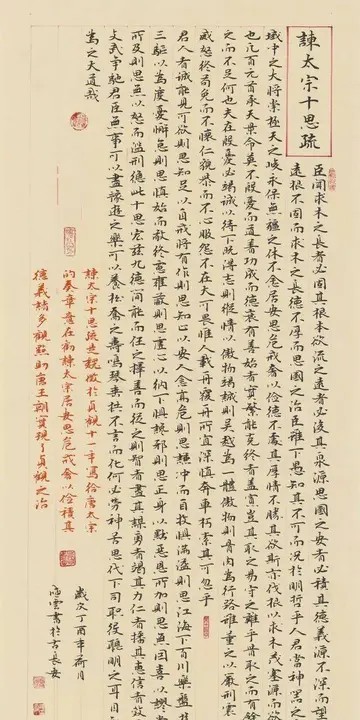 諫太宗十思疏
臣聞求木之長者必固其根本欲流之遠者必浚其泉源思國之安者必積其德義源不深而望
遠根不固而求木之長德不厚而思國之治臣雖下愚知其不可而況於明哲乎人君當神器之
域中之大將崇極天之峻永保無疆之休不念居安思危戒奢以儉德不處其厚情不勝其欲斯亦伐根以求木茂塞源而欲
也凡百元首承天景命莫不殷憂而道著功成而德衰有善始者實繁能克終者蓋寡豈其取之易守之難乎昔取之而有餘
之而不足何也夫在殷憂必竭誠以待下既得志則縱情以傲物竭誠則吳越為一體傲物則骨肉為行路雖董之以嚴刑震
威怒終苟免而不懷仁貌恭而不心服怨不在大可畏唯人載舟覆舟所宜深慎奔車朽索其可忽乎
君人者誠能見可欲則思知足以自戒將有作則思知止以安人念高危則思謙沖而自牧懼滿溢則思江海下百川樂盤遊
三驅以為度憂懈怠則思慎始而敬終慮壅蔽則思虛心以納下懼讒邪則思正身以黜惡恩所加則思無因喜以謬
所及則思無以怒而濫刑總此十思宏茲九德簡能而任之擇善而從之則智者盡其謀勇者竭其力仁者播其惠信者效
文武爭馳君臣無事可以盡豫遊之樂可以養松喬之壽鳴琴垂拱不言而化何必勞神苦思代下司職役聰明之耳目
為之大道哉
諫太宗十思疏是魏徵於貞觀十一年寫給唐太宗
的奏章意在勸諫太宗居安思危戒奢以儉積其
德義諸多觀點助唐王朝實現了貞觀之治
歲次丁酉年荷月
雲書於古長安